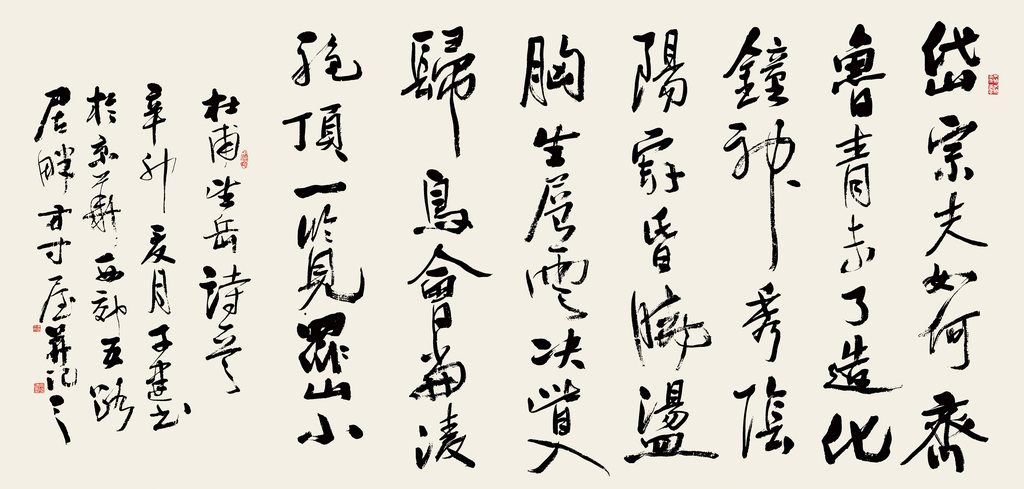 岱宗夫如何齊
魯青未了造化
鐘神秀陰
陽割昏曉盪
胸生層雲决眥入
歸鳥會當凌
絶頂一覽眾山小
杜甫望岳詩意
辛卯夏月子建书
於京華西郊五路
居畔方寸屋并记之